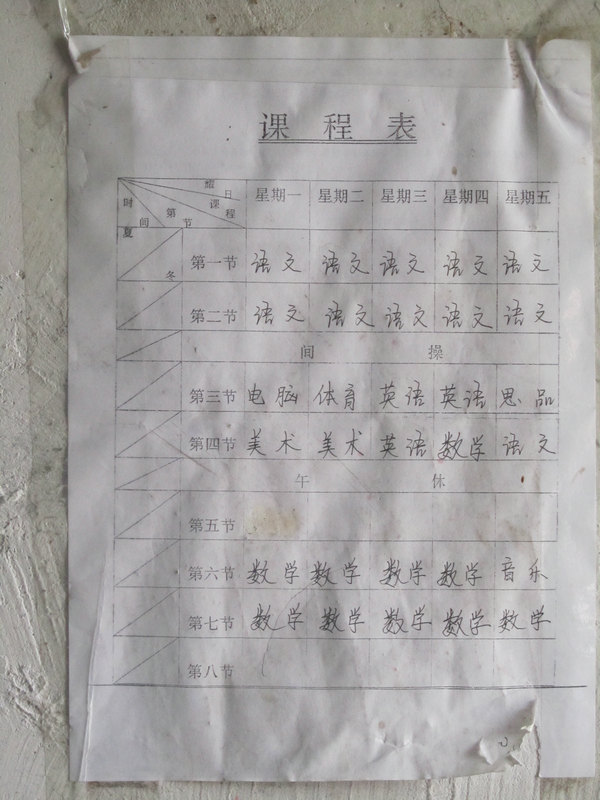 课程表
时间 第节 课程 曜日 星期一 星期二 星期三 星期四 星期五
夏 冬 第一节 语文 语文 语文 语文 语文
第二节 语文 语文 语文 语文 语文
间操
第三节 电脑 体育 英语 英语 思品
第四节 美术 美术 英语 数学 语文
午休
第五节
第六节 数学 数学 数学 数学 音乐
第七节 数学 数学 数学 数学 数学
第八节